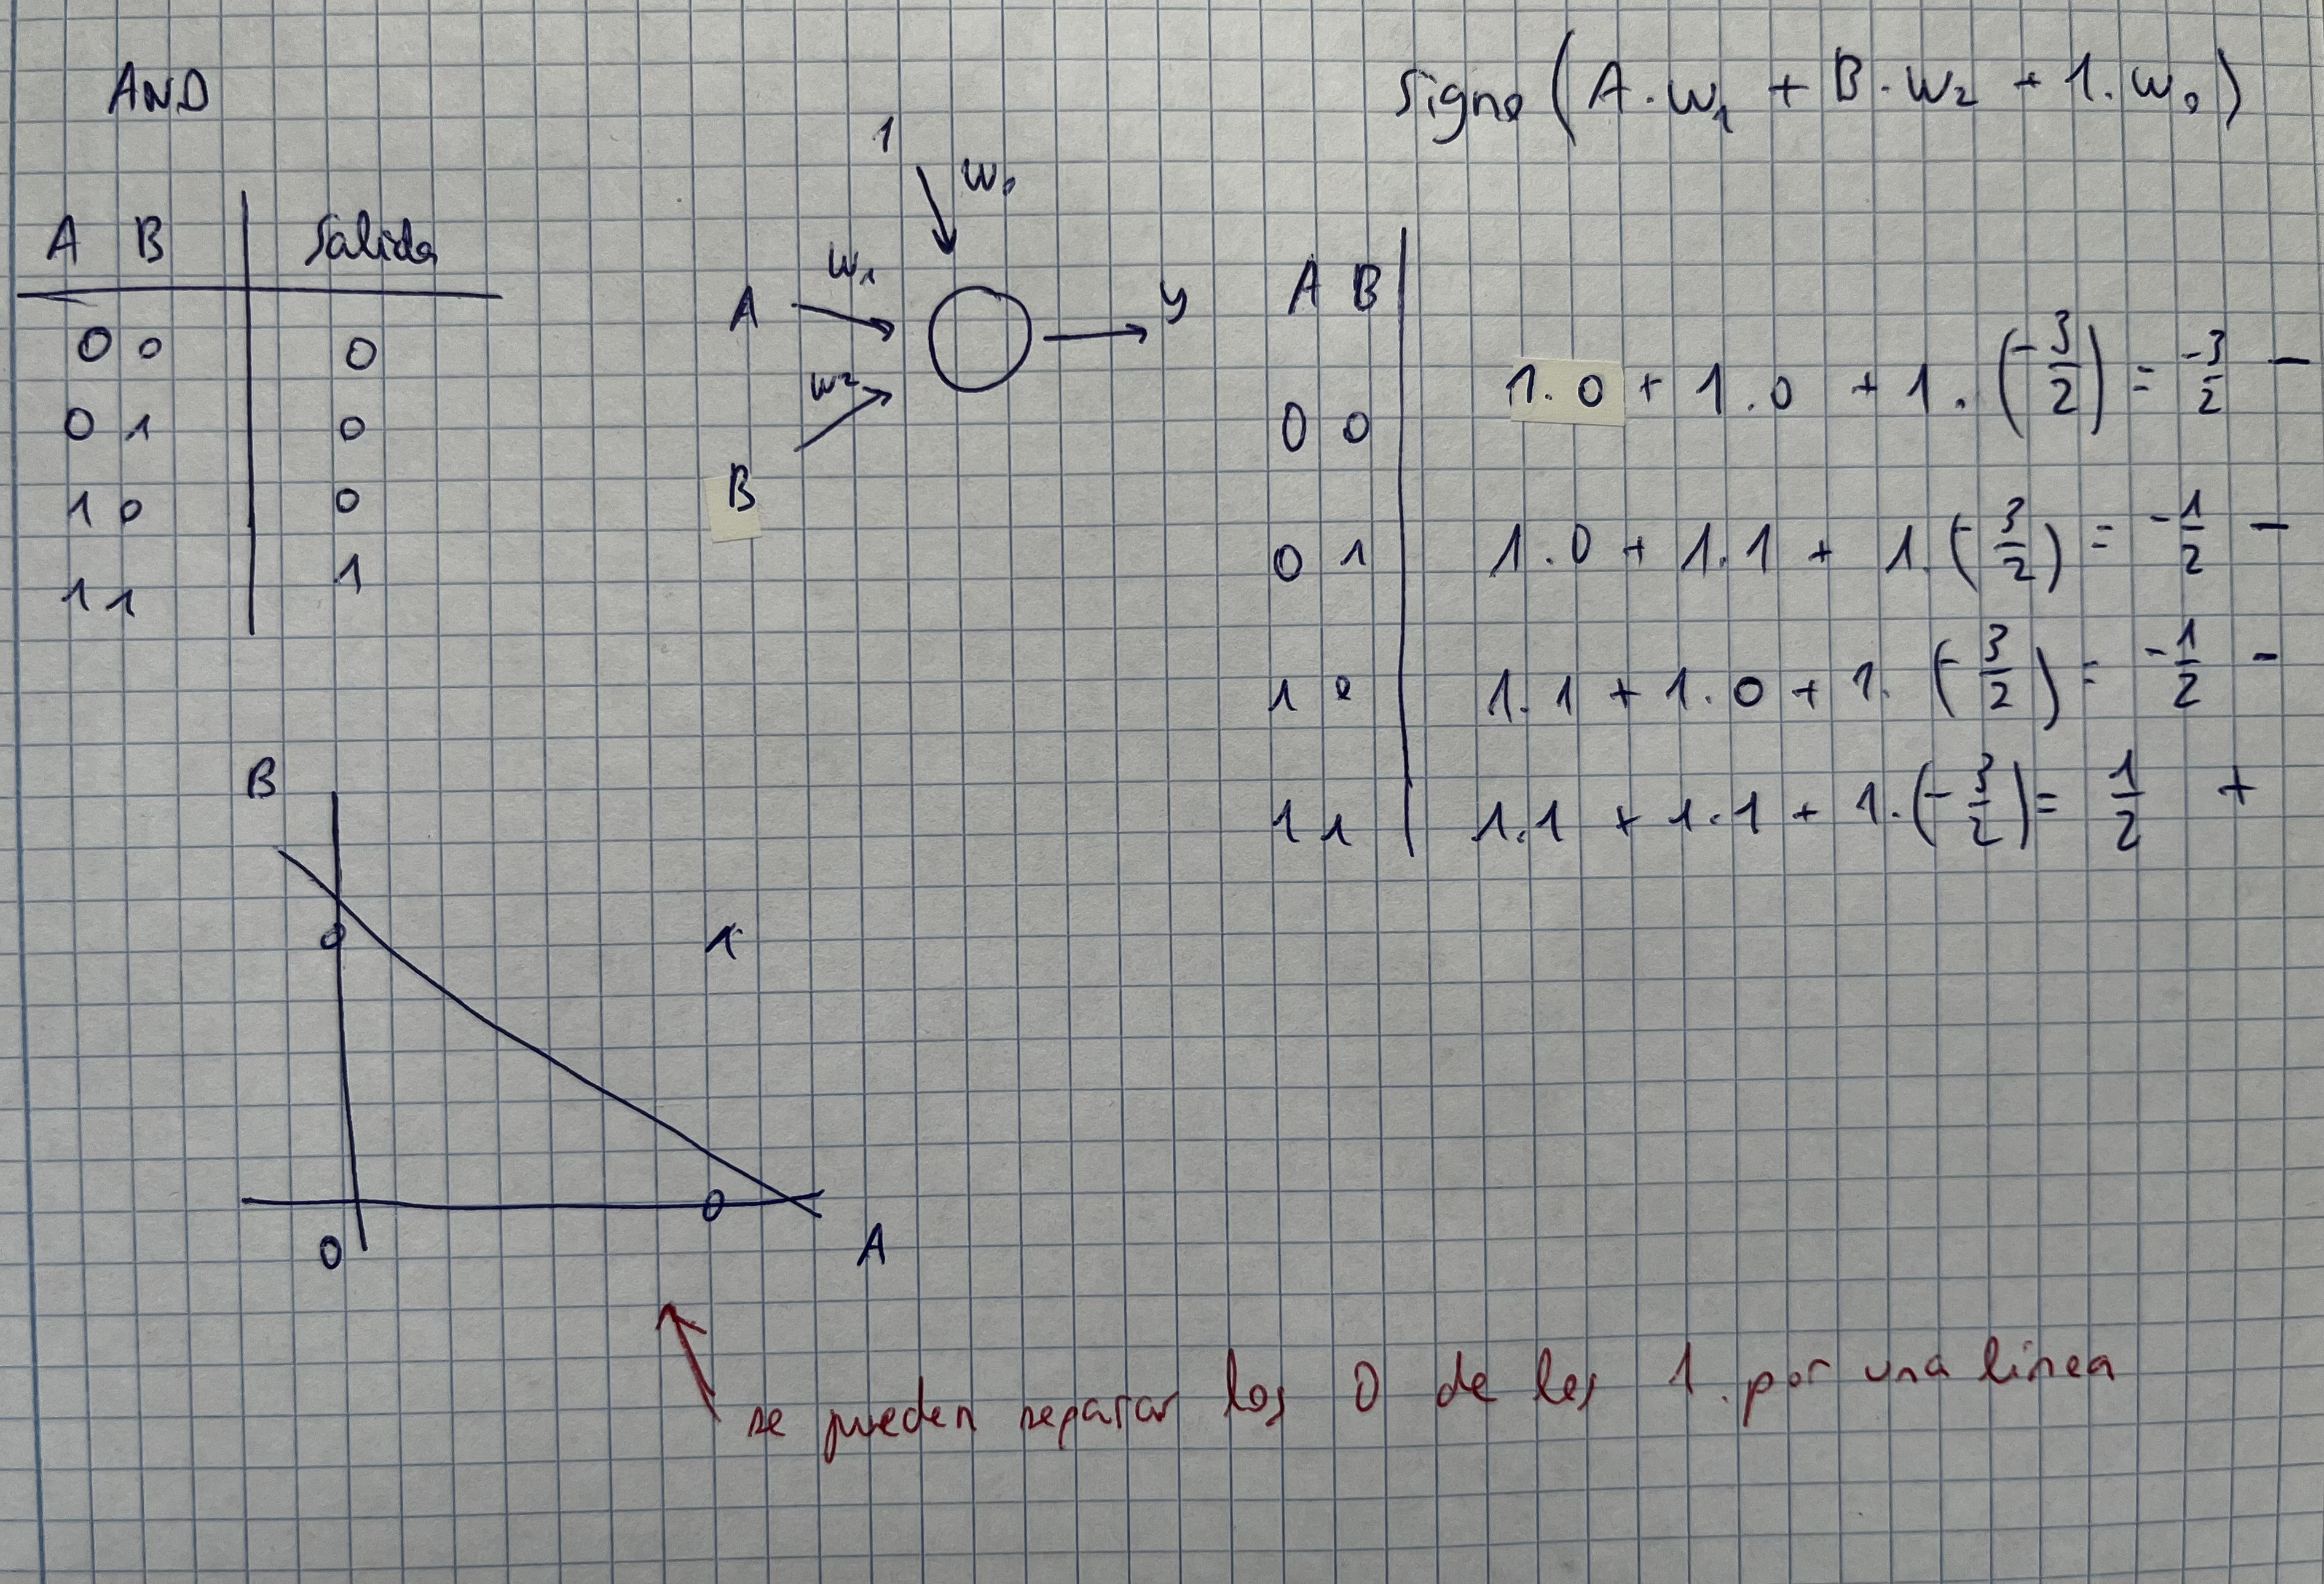 AND
A B | Salida
0 0 | 0
0 1 | 0
1 0 | 0
1 1 | 1
1
w₀
w₁
A
y
w₂
B
Signo (A · w₁ + B · w₂ + 1 · w₀)
A B |
0 0 | 1 · 0 + 1 · 0 + 1 · (-3/2) = -3/2 -
0 1 | 1 · 0 + 1 · 1 + 1 · (-3/2) = -1/2 -
1 0 | 1 · 1 + 1 · 0 + 1 · (-3/2) = -1/2 -
1 1 | 1 · 1 + 1 · 1 + 1 · (-3/2) = 1/2 +
B
0 1
0
0 A
se pueden separar los 0 de los 1 por una linea